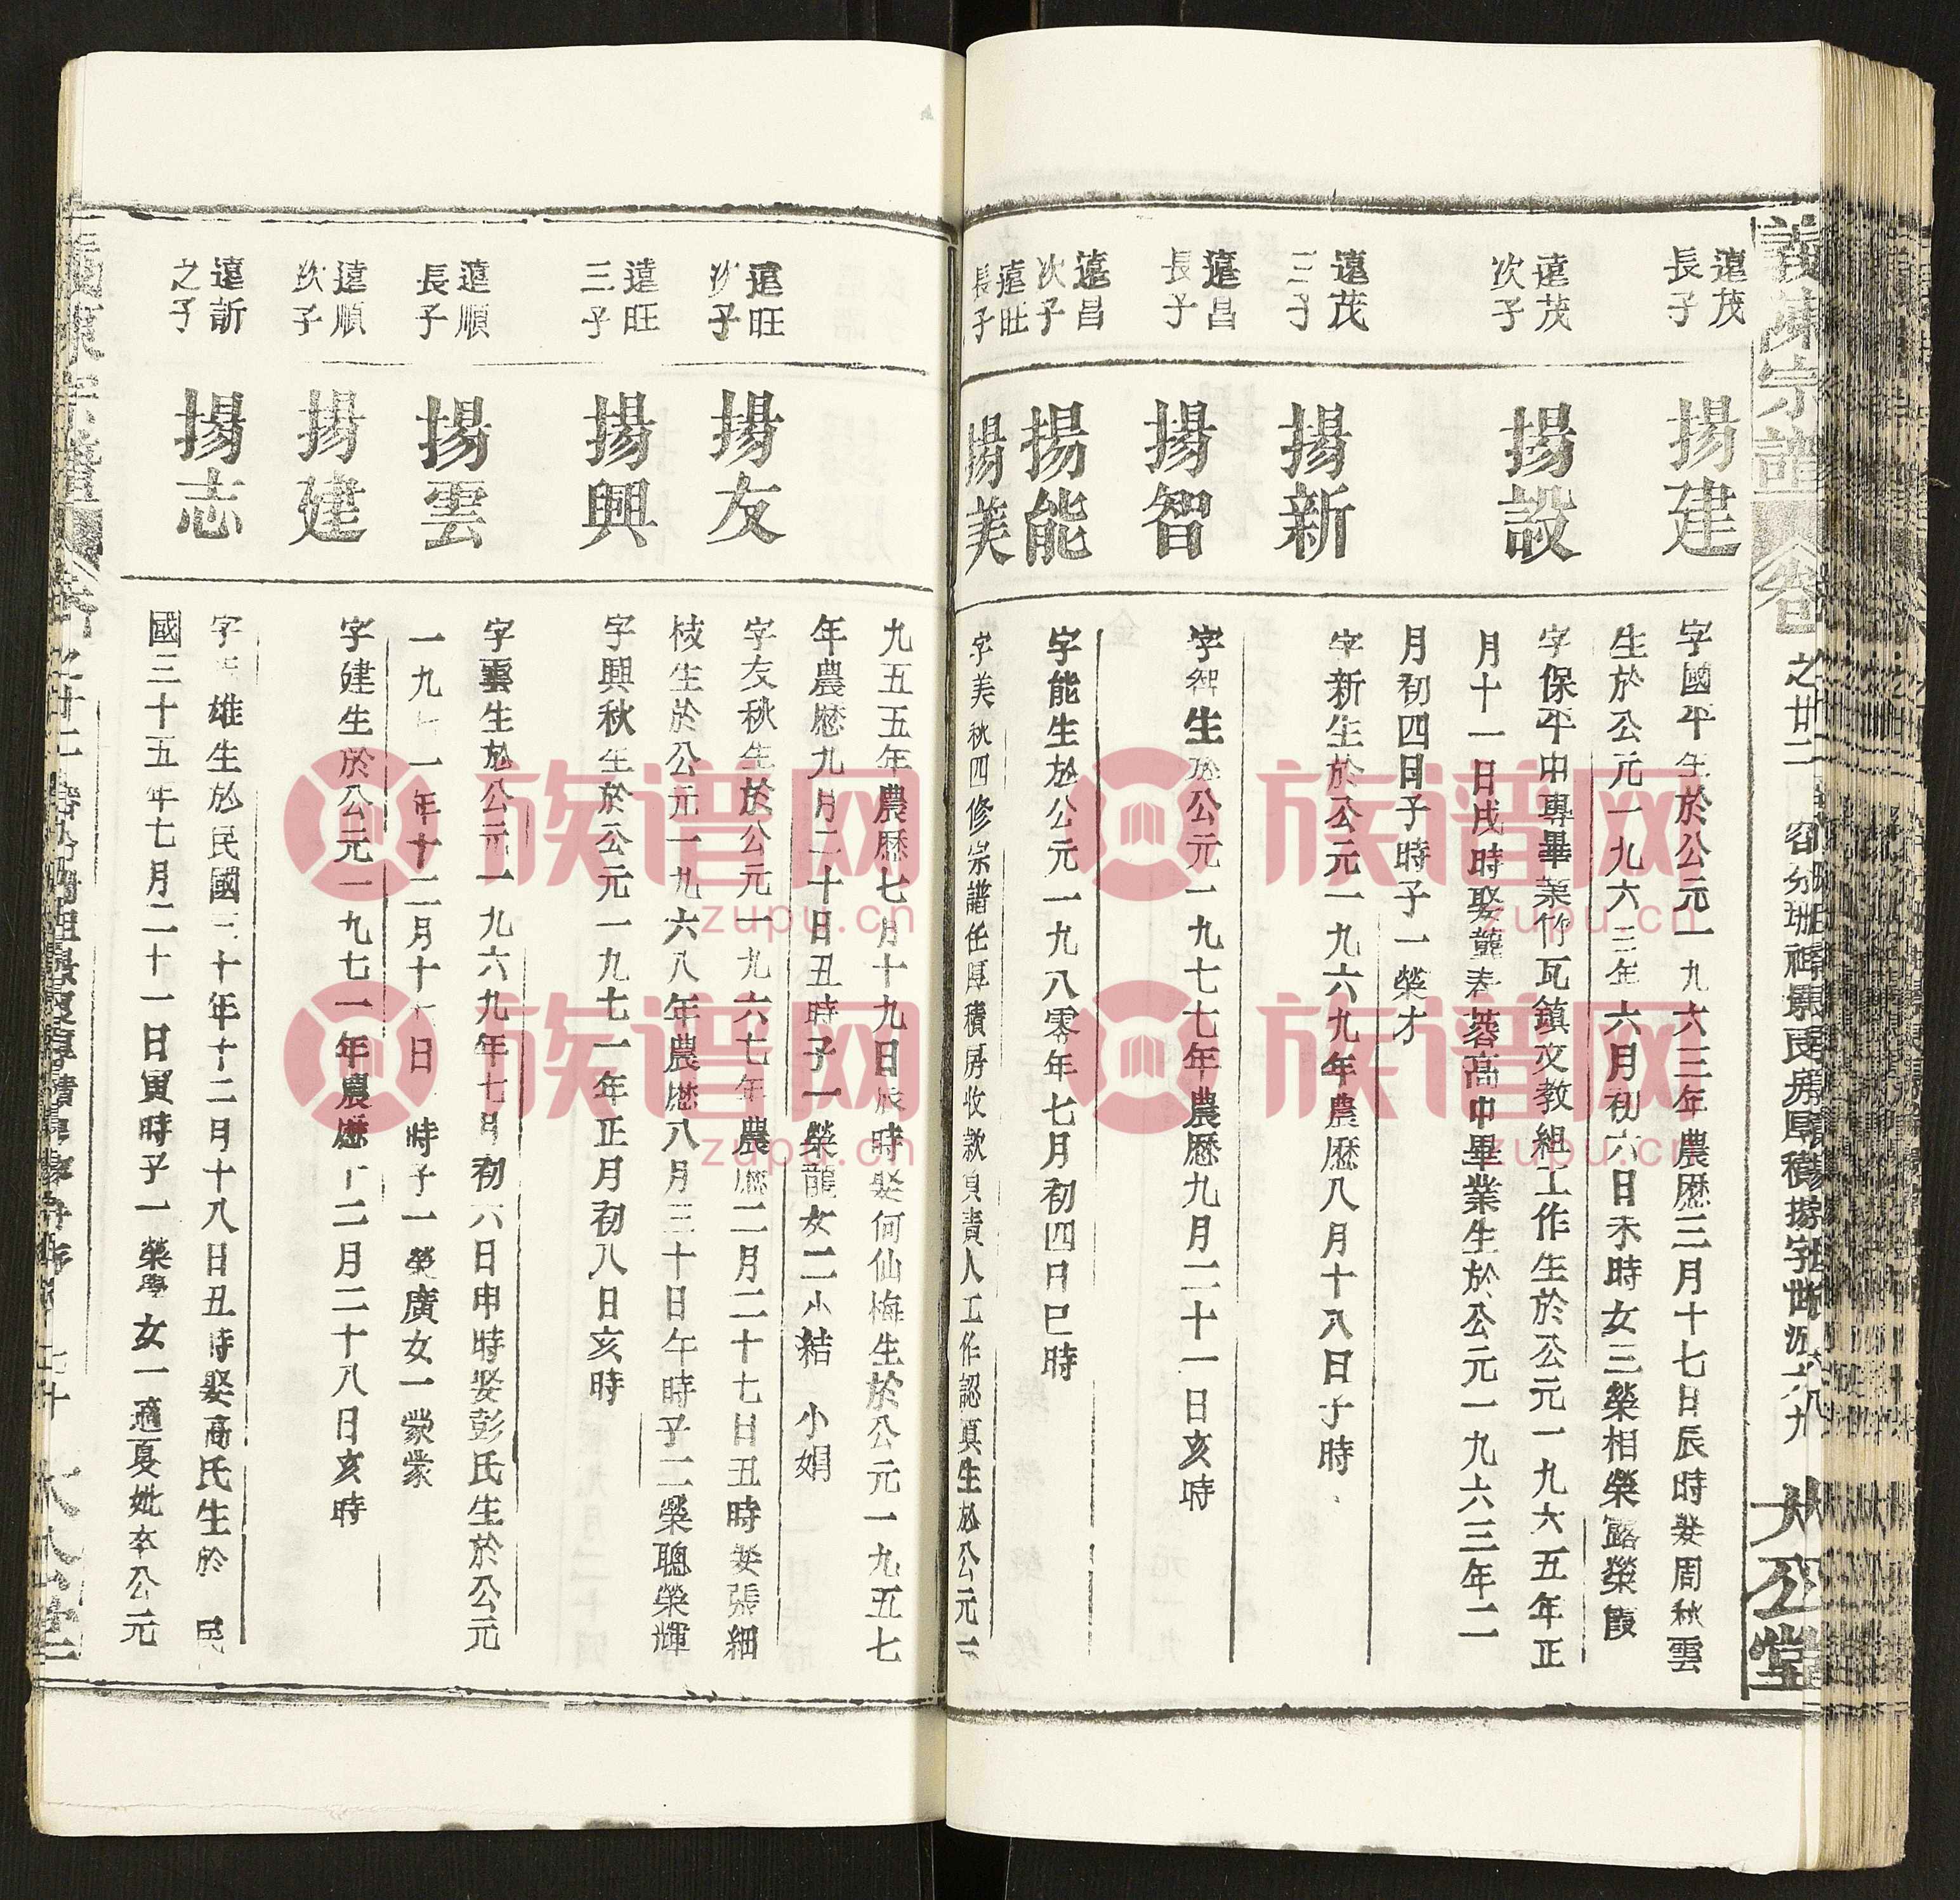 義陳宗譜
卷
之廿二
世派六八
大公堂
遠茂
長子
揚建
字國平生於公元一九六三年農歷三月十七日辰時娶周秋雲
生於公元一九六三年六月初六日未時女三榮相榮露榮霞
遠茂
次子
揚設
字保平中專畢業竹瓦鎮文教組工作生於公元一九六五年正
月十一日戌時娶龔春蓉高中畢業生於公元一九六三年二
月初四日子時子一榮才
遠茂
三子
揚新
字新生於公元一九六九年農歷八月十八日子時
遠昌
長子
揚智
字智生於公元一九七七年農歷九月二十一日亥時
遠昌
次子
揚能
字能生於公元一九八零年七月初四日巳時
遠旺
長子
揚美
字美秋四修宗譜任厚積房收款負責人工作認真生於公元一
九五五年農歷七月十九日辰時娶何仙梅生於公元一九五七
年農歷九月二十日丑時子一榮龍女二小結 小娟
遠旺
次子
揚友
字友秋生於公元一九六七年農歷二月二十七日丑時娶張細
枝生於公元一九六八年農歷八月三十日午時子二榮聰榮輝
遠旺
三子
揚興
字興秋生於公元一九七一年正月初八日亥時
遠順
長子
揚雲
字雲生於公元一九六九年七月初六日申時娶彭氏生於公元
一九七一年十二月十 日 時子一榮廣女一蒙蒙
遠順
次子
揚建
字建生於公元一九七一年農歷十二月二十八日亥時
遠新
之子
揚志
字 雄生於民國三十年十二月十八日丑時娶高氏生於 民
國三十五年七月二十一日寅時子一榮學女一適夏妣卒公元
之廿二
七十
族谱网
zupu.cn
族谱网
zupu.cn
族谱网
zupu.cn
族谱网
zupu.cn